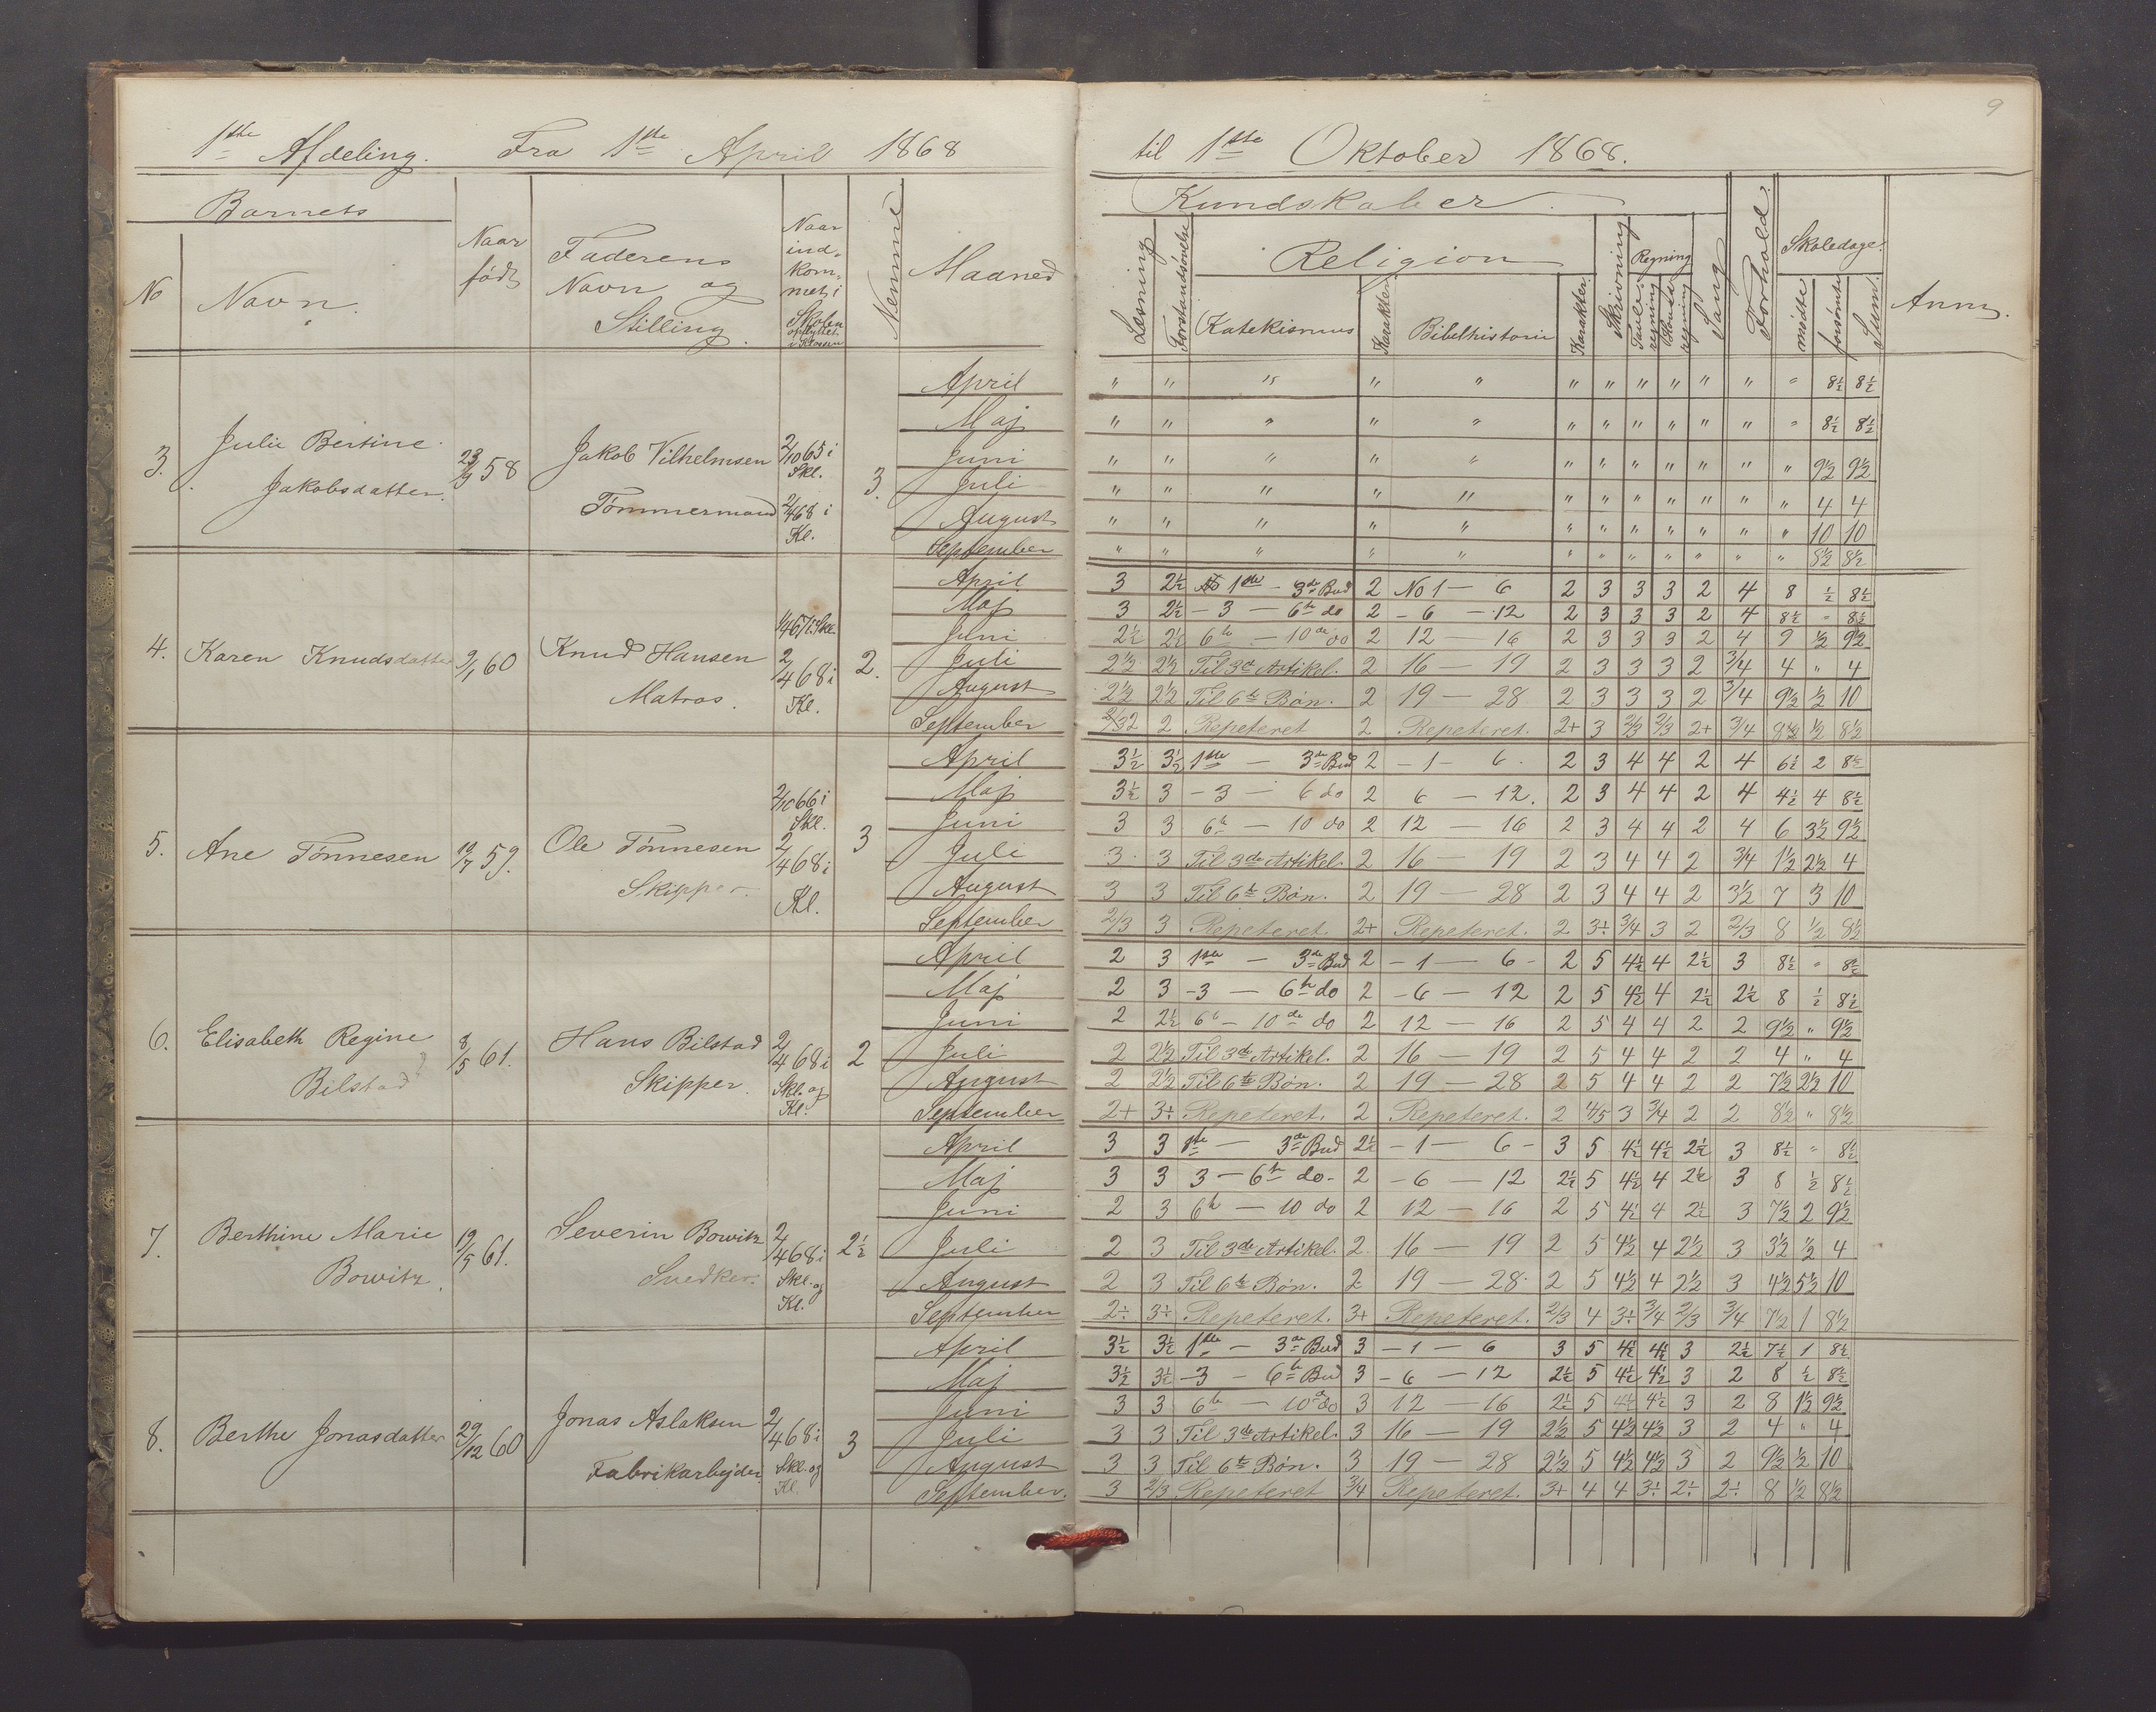 1ste Afdeling. Fra 1ste April 1868 til 1ste Oktober 1868.
9
Barnets
No Navn.
Naar født
Faderens Navn og Stilling.
Naar ind-kom-met i Skolen
Nemme
Maaned
Kundskaber.
Læsning
Forstandsøvelse
Religion
Katekismus
Karakter
Bibelhistorie
Karakter
Skrivning
Regning
Tavle-regning
Sang
Forhold.
Skoledage.
mødte
forsømte
Sum.
Anm.
3. Julie Bertine Jakobsdatter. 23/9 58 Jakob Vilhelmsen Tømmermand 2/10 65 i Skl. 2/4 68 i Kl. 3.
April " " " " " " " " " " " " 8½ 8½
Maj " " " " " " " " " " " " 8½ 8½
Juni " " " " " " " " " " " " 9½ 9½
Juli " " " " " " " " " " " " 4 4
August " " " " " " " " " " " " 10 10
September " " " " " " " " " " " " 8½ 8½
4. Karen Knudsdatter 9/1 60 Knud Hansen Matros. 1/4 67 i Skl. 2/4 68 i Kl. 2.
April 3 2½ No 1ste - 3de Bud 2 No 1 - 6 2 3 3 3 2 4 8 ½ 8½
Maj 3 2½ - 3 - 6te do 2 - 6 - 12 2 3 3 3 2 4 8½ " 8½
Juni 2½ 2½ 6te - 10de do 2 12 - 16 2 3 3 3 2 4 9 ½ 9½
Juli 2½ 2½ Til 3de Artikel. 2 16 - 19 2 3 3 3 2 3/4 4 " 4
August 2½ 2½ Til 6te Bøn. 2 19 - 28 2 3 3 3 2 3/4 9½ ½ 10
September 2 Repeteret 2 Repeteret. 2+ 3 2/3 2/3 2+ 3/4 8½ ½ 8½
5. Ane Tønnesen 19/7 59. Ole Tønnesen Skipper. 2/10 66 i Skl. 2/4 68 i Kl. 3
April 3½ 3½ 1ste - 3de Bud 2 - 1 - 6 2 3 4 4 2 4 6½ 2 8½
Maj 3½ 3 - 3 - 6 do 2 6 - 12. 2 3 4 4 2 4 4½ 4 8½
Juni 3 3 6te - 10 do 2 12 - 16 2 3 4 4 2 4 6 3½ 9½
Juli 3 3 Til 3de Artikel. 2 16 - 19 2 3 4 4 2 3/4 1½ 2½ 4
August 3 3 Til 6te Bøn. 2 19 - 28 2 3 4 4 2 3½ 7 3 10
September 2/3 3 Repeteret. 2+ Repeteret. 2 3÷ 3/4 3 2 2/3 8 ½ 8½
6. Elisabeth Regine Bilstad 8/5 61. Hans Bilstad Skipper. 2/4 68 i Skl. og Kl. 2
April 2 3 1ste - 3de Bud 2 - 1 - 6 - 2 5 4½ 4 2½ 3 8½ " 8½
Maj 2 3 - 3 - 6te do 2 - 6 - 12 2 5 4½ 4 2½ 2½ 8 ½ 8½
Juni 2 2½ 6te - 10de do 2 12 - 16 2 5 4 4 2 2 9½ " 9½
Juli 2 2½ Til 3de Artikel. 2 16 - 19 2 5 4 4 2 2 4 " 4
August 2 2½ Til 6te Bøn. 2 19 - 28 2 5 4 4 2 2 7½ 2½ 10
September 2+ 3÷ Repeteret. 2 Repeteret. 2 4/5 3 3/4 2 2 8½ " 8½
7. Berthine Marie Bowitz. 19/5 61. Severin Bowitz Snedker. 2/4 68 i Skl. og Kl. 2½
April 3 3 1ste - 3de Bud 2½ - 1 - 6 - 3 5 4½ 4½ 2½ 3 8½ " 8½
Maj 3 3 3 - 6te do - 2 - 6 - 12 2½ 5 4½ 4 2½ 3 8 ½ 8½
Juni 2 3 6te - 10 do 2 12 - 16 2 5 4½ 4 2½ 3 7½ 2 9½
Juli 2 3 Til 3de Artikel. 2 16 - 19 2 5 4½ 4 2½ 3 3½ ½ 4
August 2 3 Til 6te Bøn. 2 19 - 28 2 5 4½ 4 2½ 3 4½ 5½ 10
September 2÷ 3÷ Repeteret. 3+ Repeteret. 2/3 4 3÷ 3/4 2/3 3/4 7½ 1 8½
8. Berthe Jonasdatter 29/12 60 Jonas Aslaksen Fabrikarbejder. 2/4 68 i Skl. og Kl. 3
April 3½ 3½ 1ste - 3de Bud 3 - 1 - 6 3 5 4½ 4½ 3 2½ 7½ 1 8½
Maj 3½ 3½ - 3 - 6te Bud 3 - 6 - 12 2½ 5 4½ 4½ 3 2 8 ½ 8½
Juni 3 3 6te - 10de do 3 12 - 16 2½ 5 4½ 4½ 3 2 8 1½ 9½
Juli 3 3 Til 3de Artikel. 3 16 - 19 2½ 5 4½ 4½ 3 2 4 " 4
August 3 3 Til 6te Bøn. 3 19 - 28 2½ 5 4½ 4½ 3 2 9½ ½ 10
September. 3 2/3 Repeteret 3/4 Repeteret. 3+ 4 4 3÷ 2÷ 2÷ 8 ½ 8½